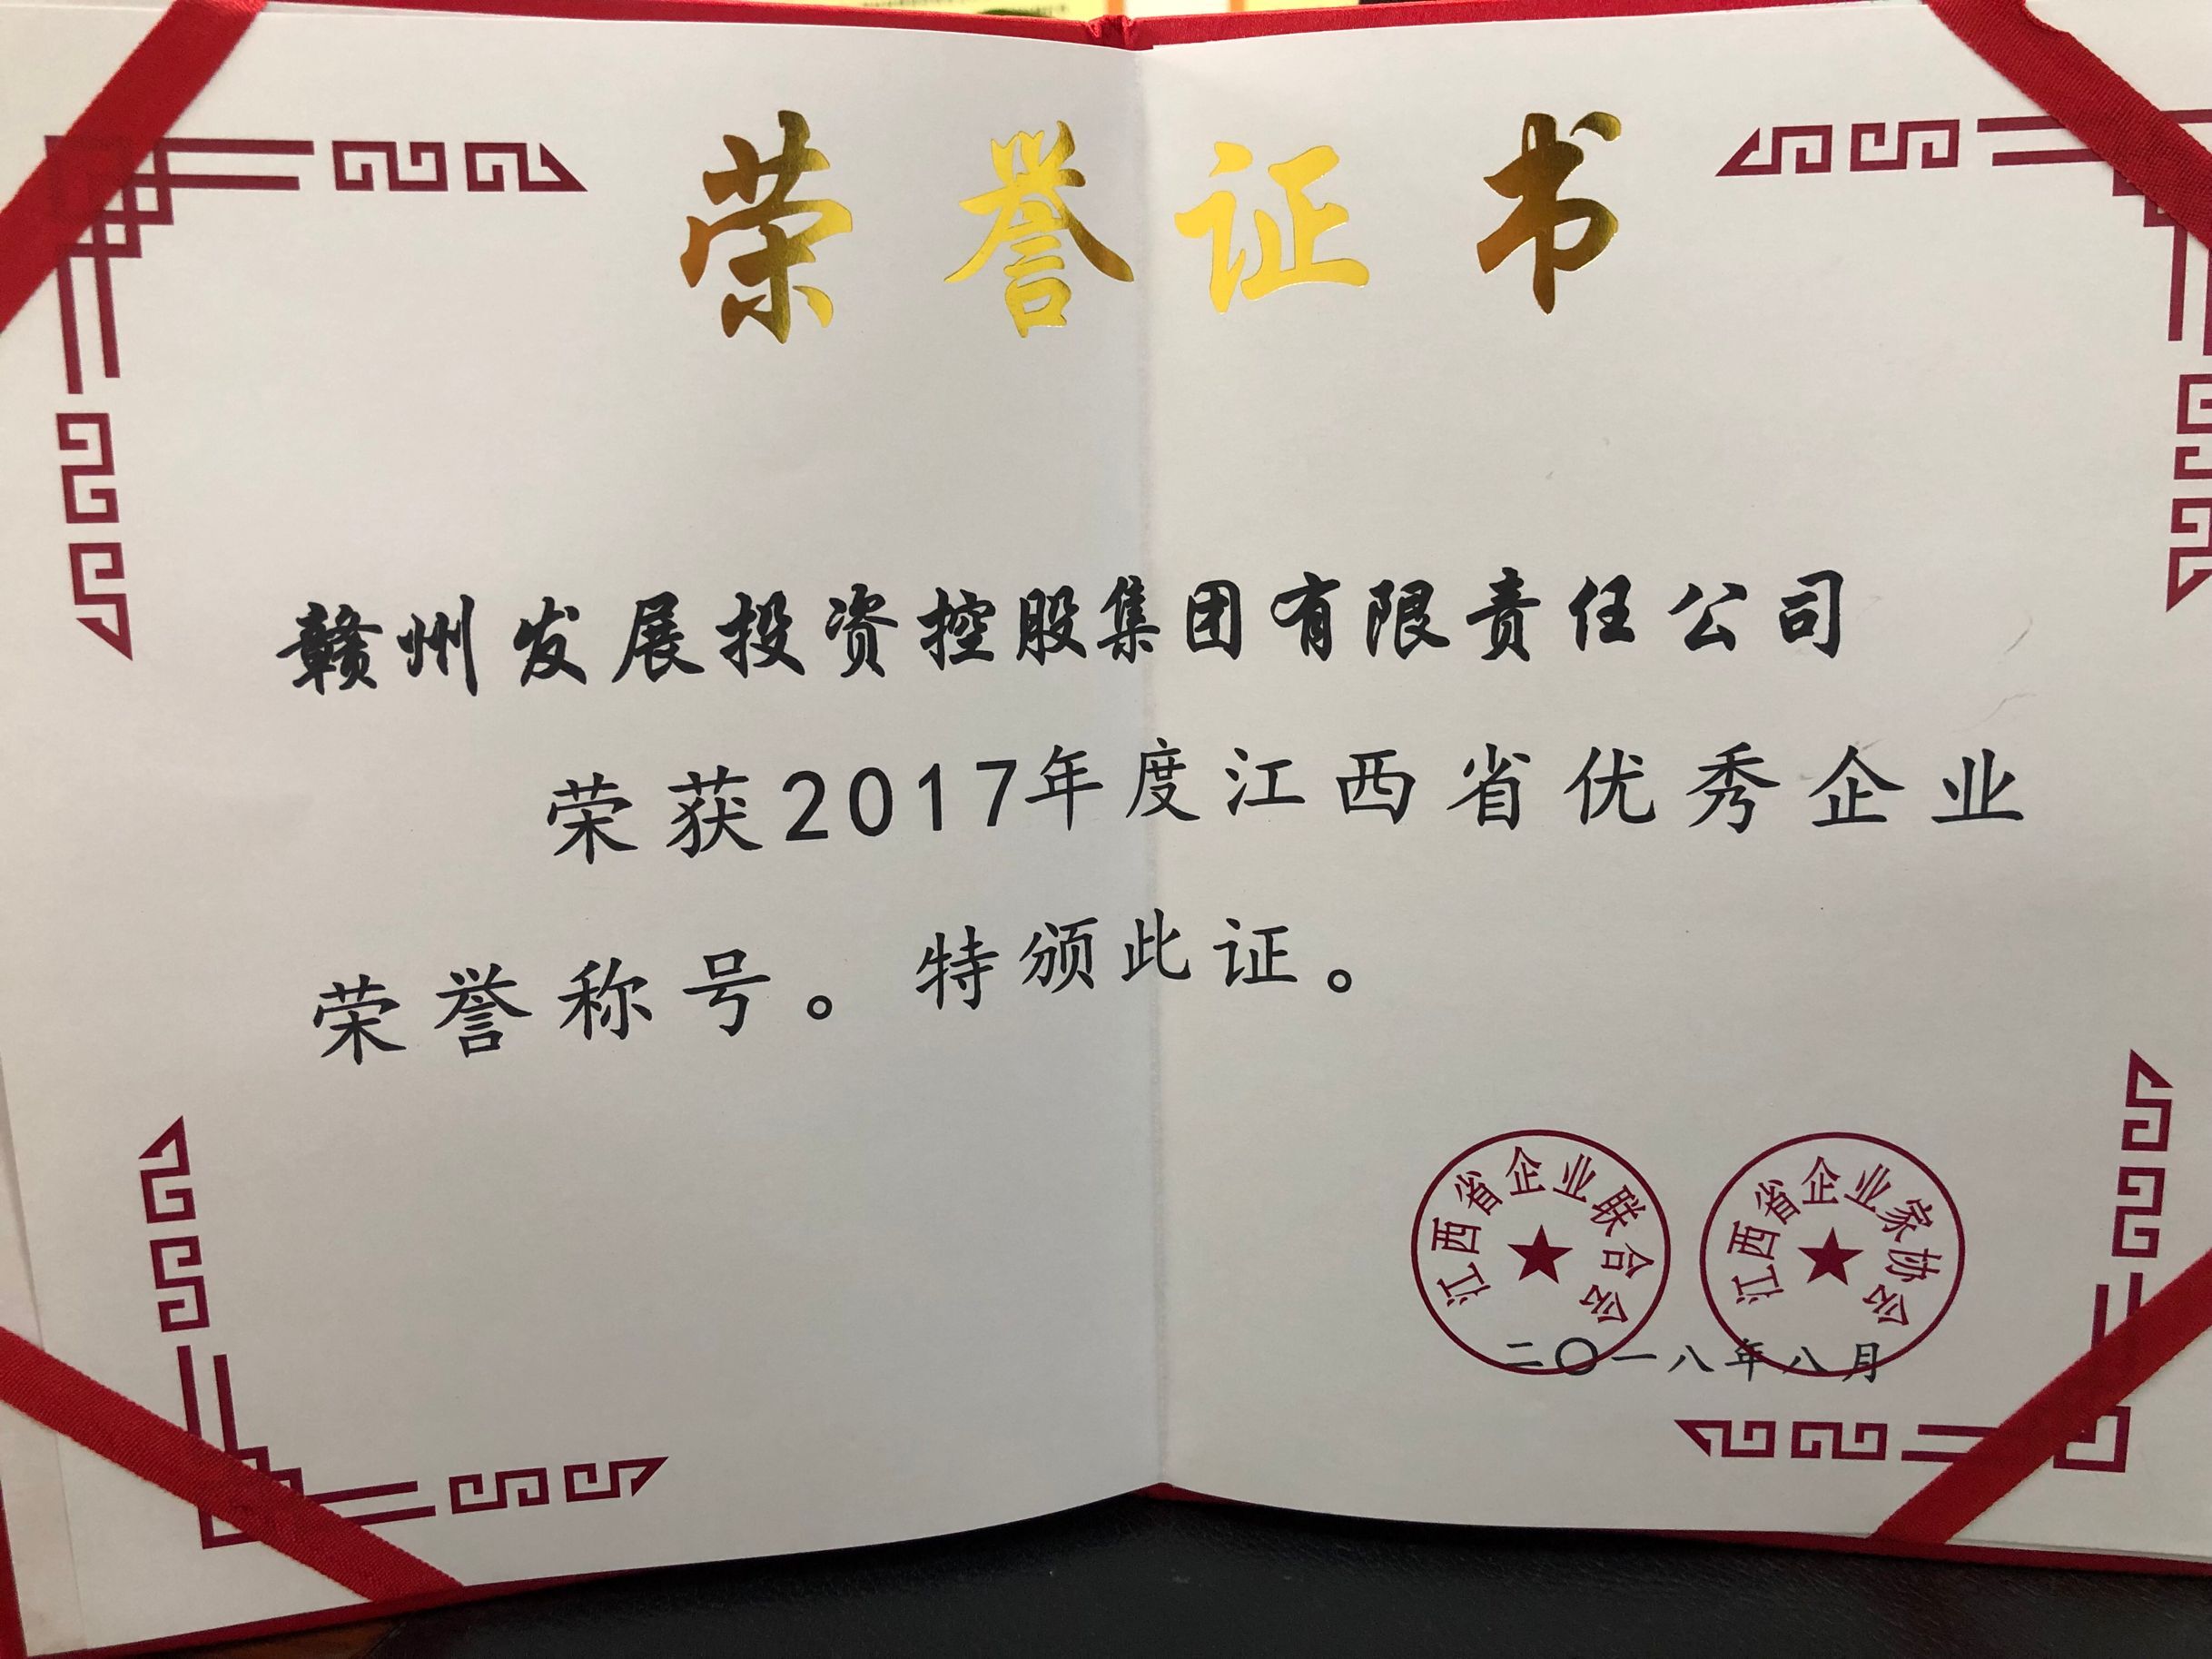 荣誉证书
赣州发展投资控股集团有限责任公司
荣获2017年度江西省优秀企业
荣誉称号。特颁此证。
江西省企业联合会
江西省企业家协会
二〇一八年八月